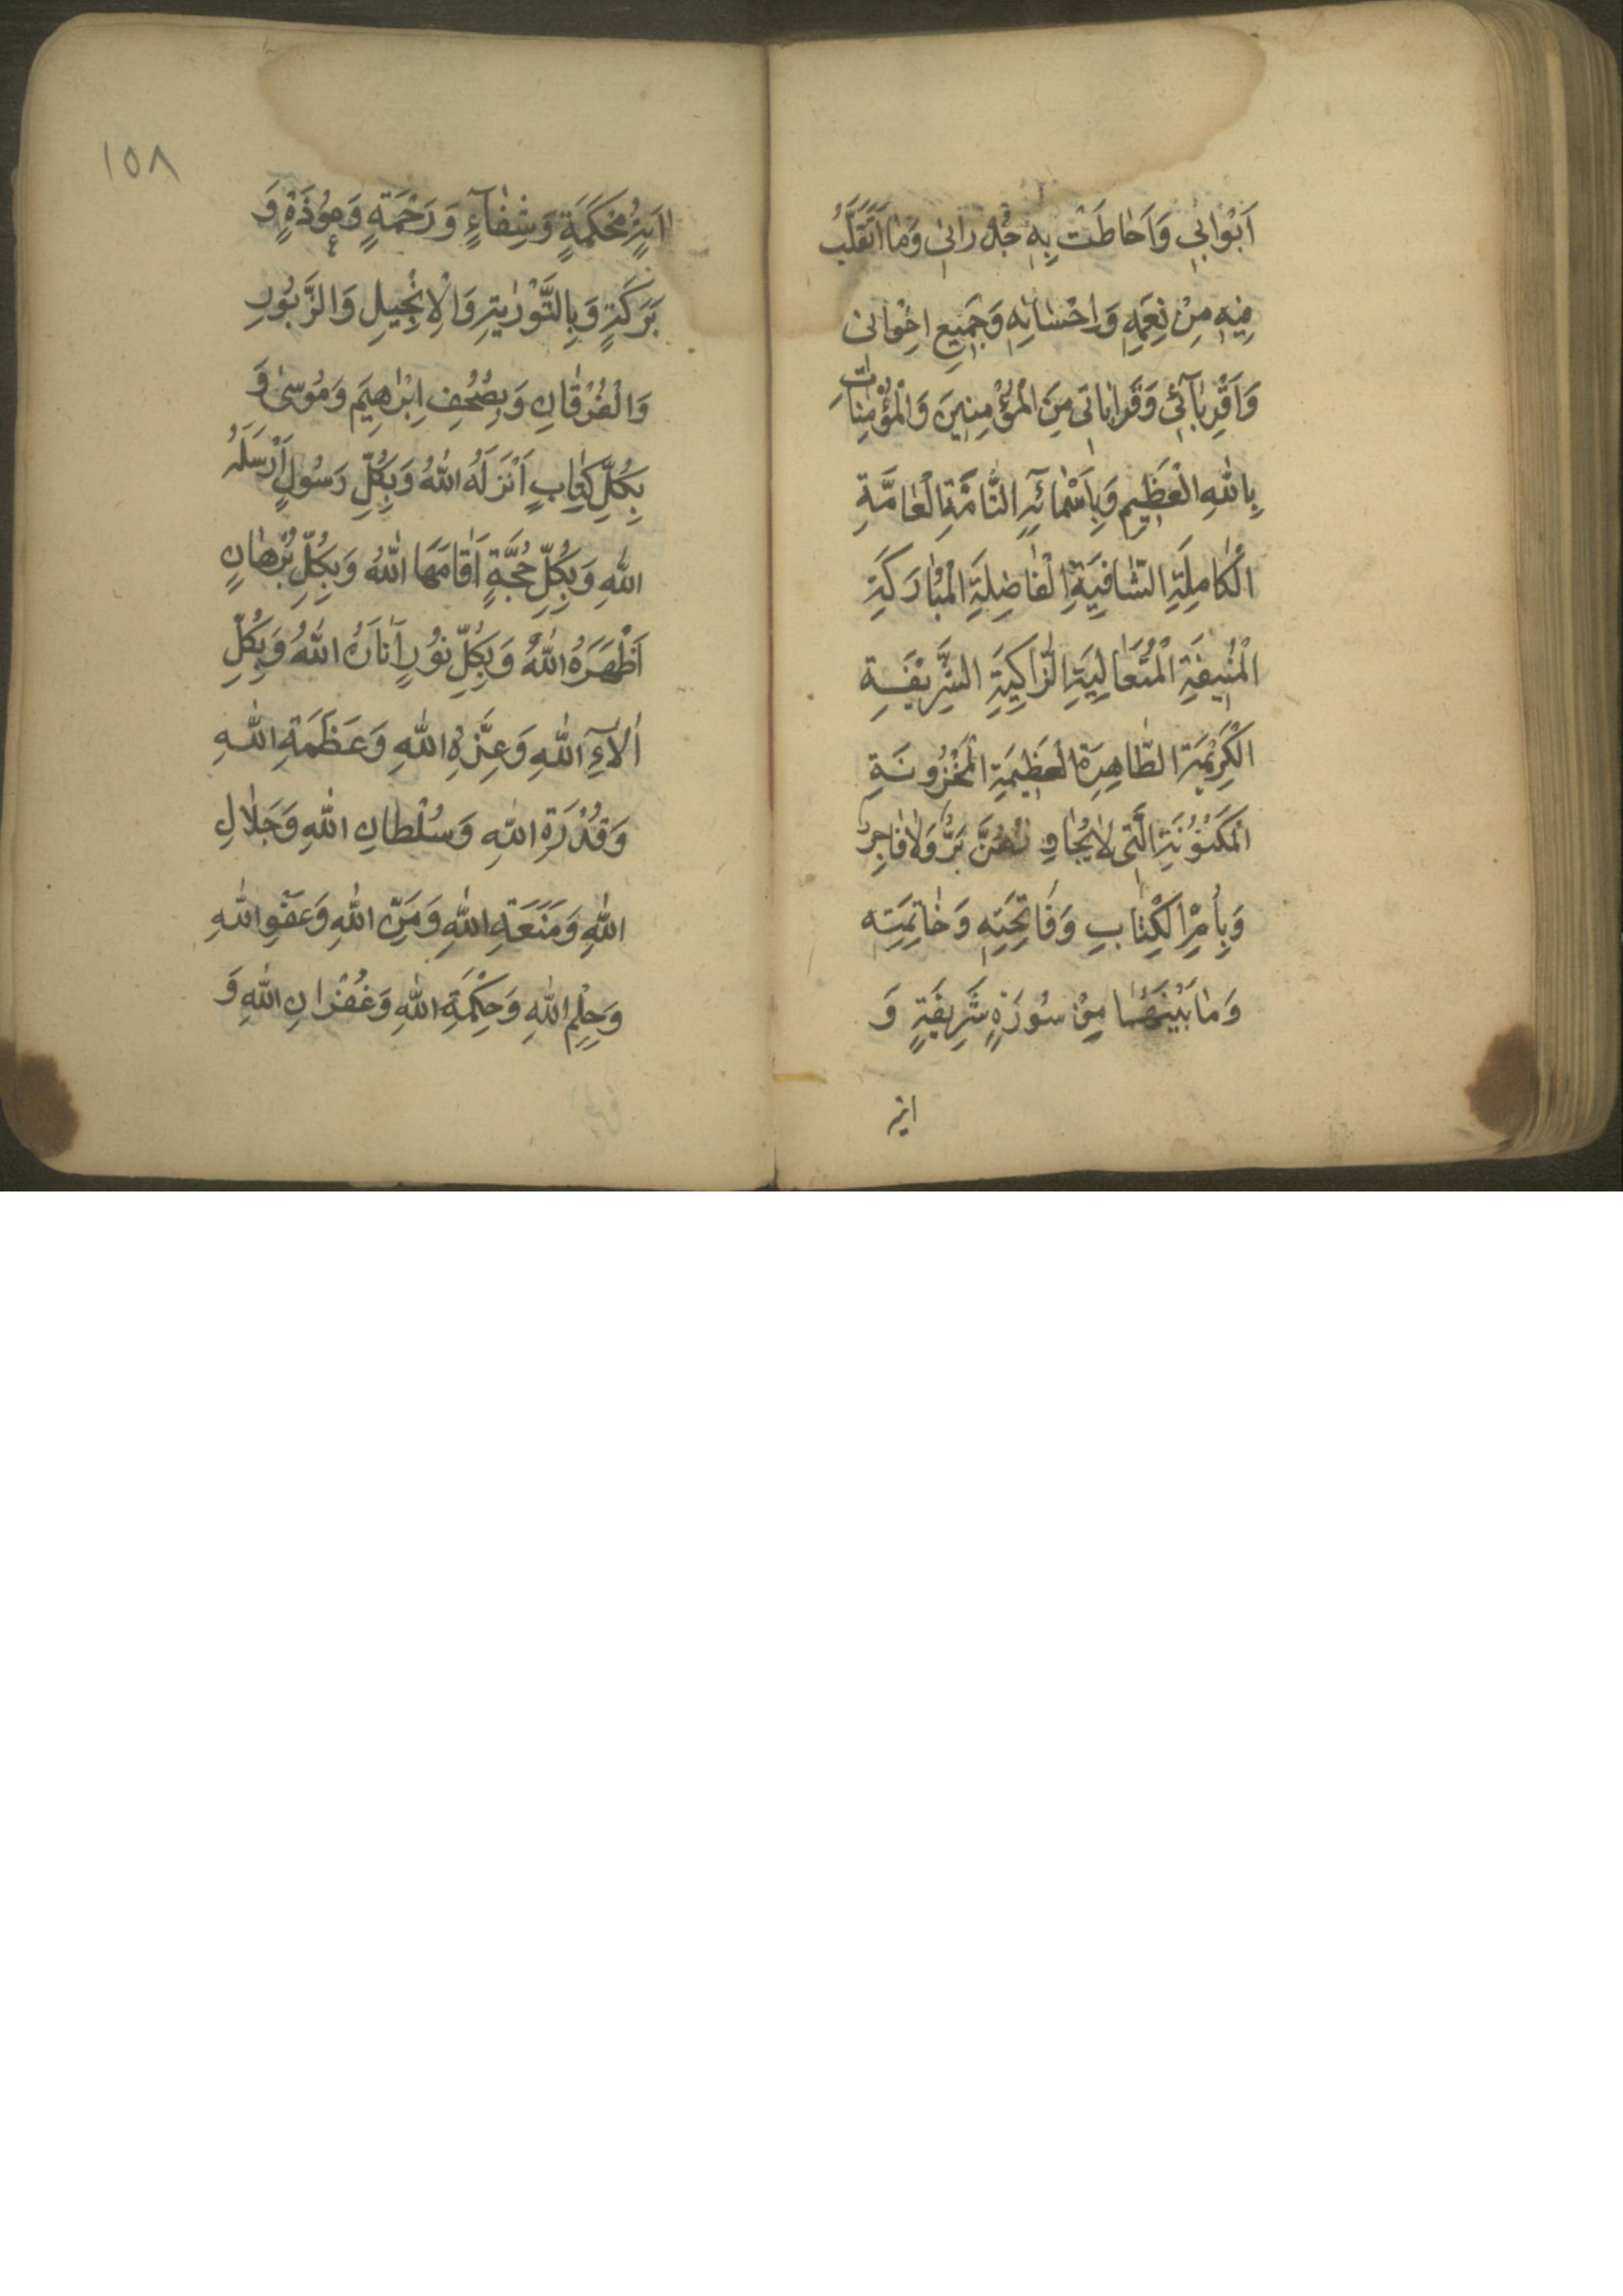 اَبْوٰابِي وَاَحٰاطَتْ بِهِ جُدْرٰانِى وَمٰا اَتَقَلَّبُ
فِيهِ مِنْ نِعَمِهِ وَاِحْسٰانِهِ وَجَمِيعِ اِخْوٰانِى
وَاَقْرِبٰآئِي وَقَرٰابٰاتِى مِنَ الْمُؤْمِنِينَ وَالْمُؤْمِنٰاتِ
بِاللّٰهِ الْعَظِيمِ وَبِاَسْمٰائِهِ التَّامَّةِ الْعٰامَّةِ
الْكٰامِلَةِ الشّٰافِيَةِ الْفٰاضِلَةِ الْمُبٰارَكَةِ
الْمُنِيفَةِ الْمُتَعٰالِيَةِ الزّٰاكِيَةِ الشَّرِيفَةِ
الْكَرِيمَةِ الطّٰاهِرَةِ الْعَظِيمَةِ الْمَخْزُونَةِ
الْمَكْنُونَةِ الَّتِى لاٰ يُجٰاوِزُهُنَّ بَرٌّ وَلاٰ فٰاجِرٌ
وَبِاُمِّ الْكِتٰابِ وَفٰاتِحَتِهِ وَخٰاتِمَتِهِ
وَمٰا بَيْنَهُمٰا مِنْ سُورَةٍ شَرِيفَةٍ وَ
ايه
١٥٨
اٰيَةٍ مُحْكَمَةٍ وَشِفٰآءٍ وَرَحْمَةٍ وَعُوْذَةٍ وَ
بَرَكَةٍ وَبِالتَّوْرٰيةِ وَالْاِنْجِيلِ وَالزَّبُورِ
وَالْفُرْقٰانِ وَبِصُحُفِ اِبْرٰهِيمَ وَمُوسىٰ وَ
بِكُلِّ كِتٰابٍ اَنْزَلَهُ اللّٰهُ وَبِكُلِّ رَسُولٍ اَرْسَلَهُ
اللّٰهِ وَبِكُلِّ حُجَّةٍ اَقٰامَهَا اللّٰهُ وَبِكُلِّ بُرْهٰانٍ
اَظْهَرَهُ اللّٰهُ وَبِكُلِّ نُورٍ اَنٰارَهُ اللّٰهُ وَبِكُلِّ
اٰلاٰۤءِ اللّٰهِ وَعِزَّةِ اللّٰهِ وَعَظَمَةِ اللّٰهِ
وَقُدْرَةِ اللّٰهِ وَسُلْطٰانِ اللّٰهِ وَجَلٰالِ
اللّٰهِ وَمَنَعَةِ اللّٰهِ وَمَنِّ اللّٰهِ وَعَفْوِ اللّٰهِ
وَحِلْمِ اللّٰهِ وَحِكْمَةِ اللّٰهِ وَغُفْرٰانِ اللّٰهِ وَ